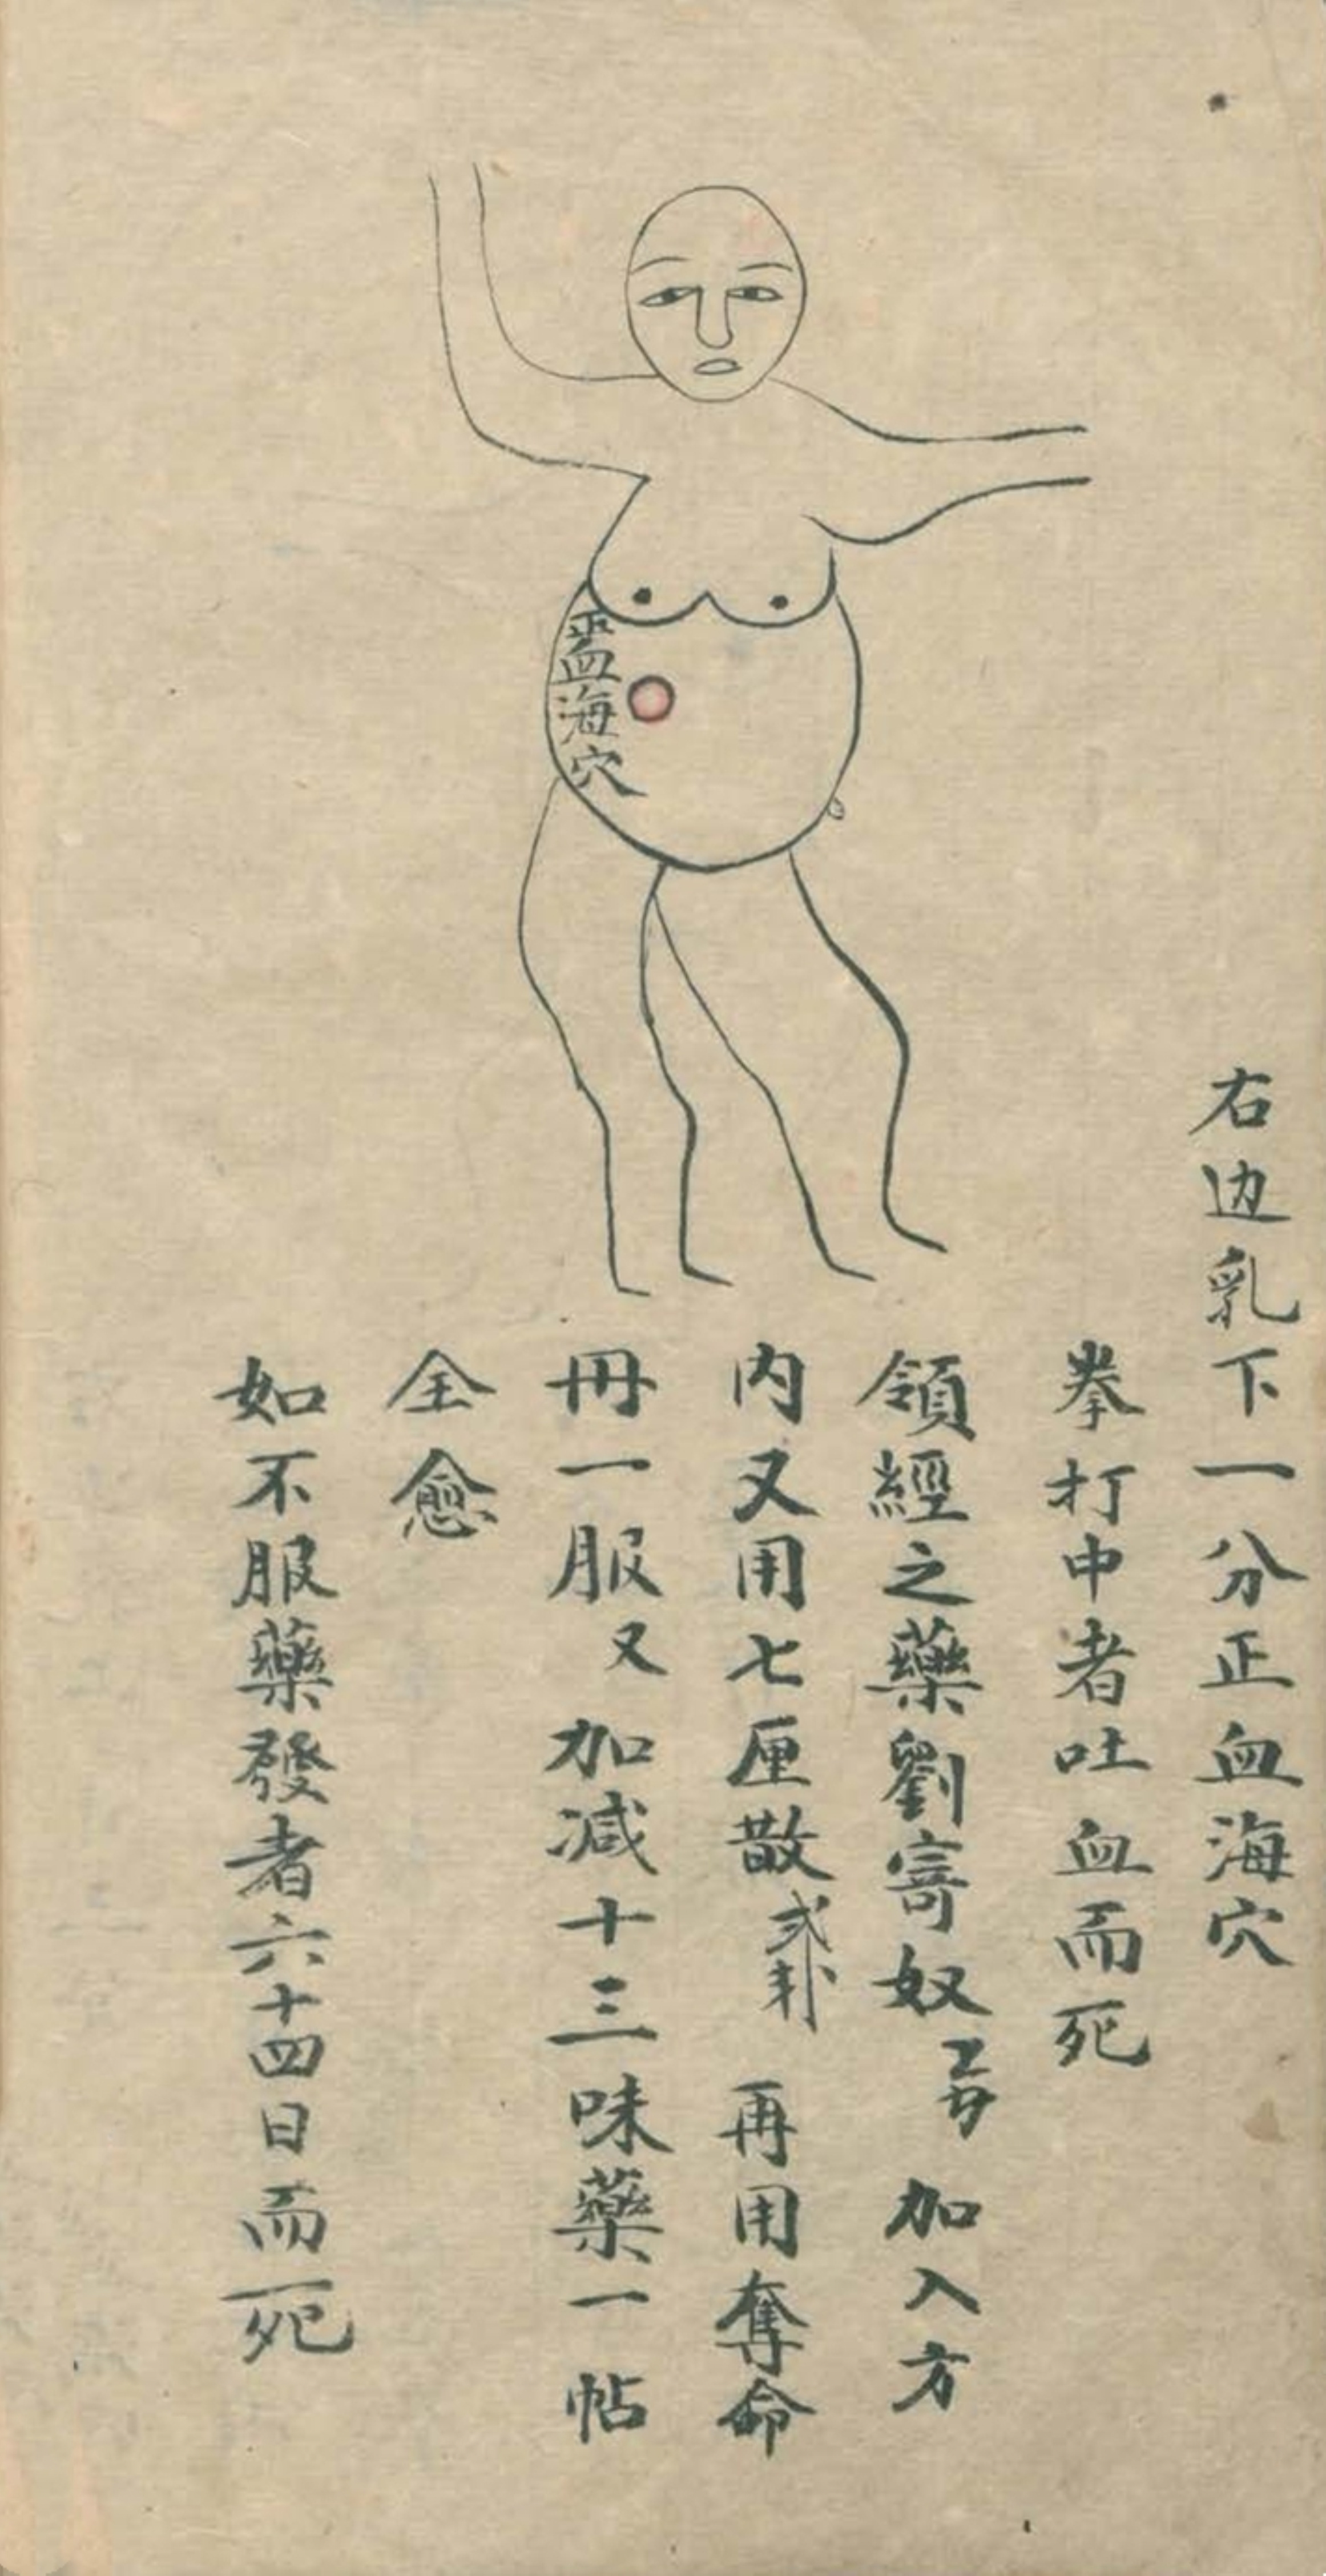 右边乳下一分正血海穴
拳打中者吐血而死
領經之藥劉寄奴 加入方
内又用七厘散 再用奪命
冊一服又加減十三味藥一帖
全愈
如不服藥發者六十四日而死
正血海穴